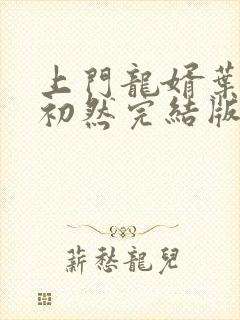 上門龍婿葉
初然完結版
薪愁龍兒